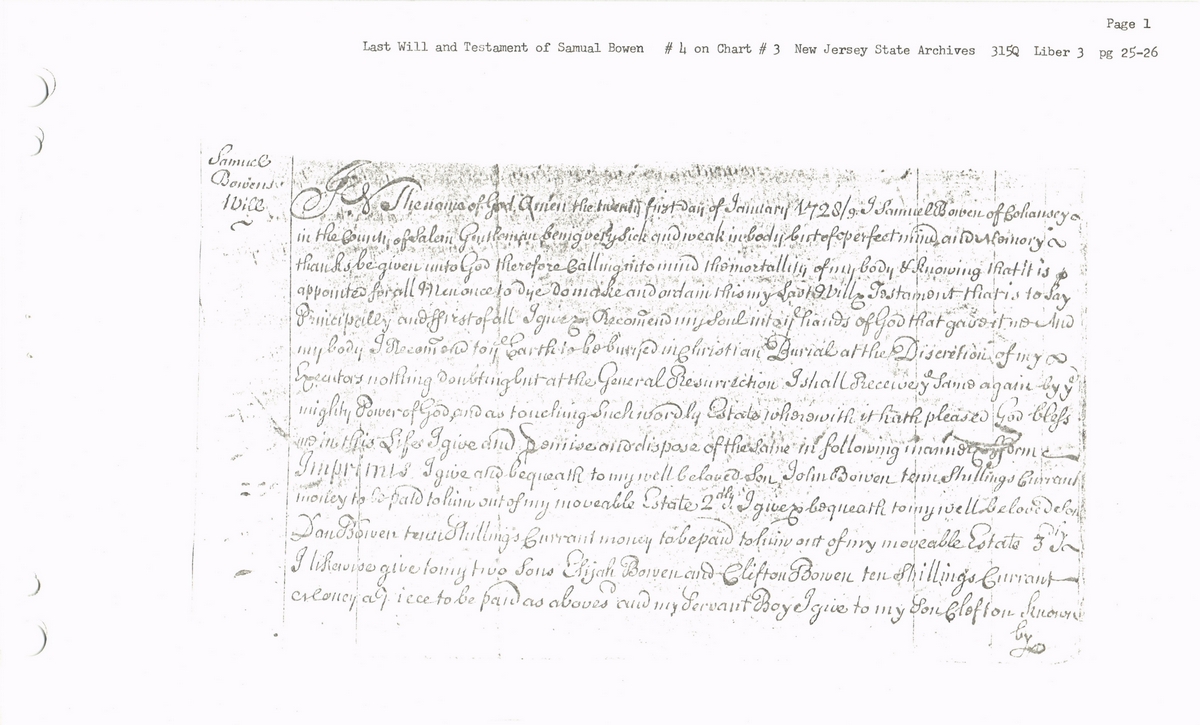 Page 1
Last Will and Testament of Samual Bowen # 4 on Chart # 3 New Jersey State Archives 315Q Liber 3 pg 25-26
Samuel
Bowens
Will
In The name of God Amen the twenty first day of January 1728/9 I Samuel Bowen of Cohansey
in the County of Salem Gentleman being very sick and weak in body but of perfect mind and Memory
thanks be given unto God therefore Calling into mind the mortallity of my body & knowing that it is
appointed for all Men once to dye do make and ordain this my Last Will & Testament that is to Say
Principally and first of all I give & Recomend my Soul into ye hands of God that gave it me And
my body I Recomend to ye Earth to be buryed in Christian Burial at the Discretion of my
Executors nothing doubting but at the General Resurrection I shall Receive ye Same again by ye
mighty Power of God and as touching Such wordly Estate wherewith it hath pleased God bless
me in this Life I give and Demise and dispose of the same in following manner
Imprimis I give and bequeath to my well beloved Son John Bowen tenn Shillings Currant
money to be paid to him out of my moveable Estate 2dly I give & bequeath to my well beloved Son
Dan Bowen tenn Shillings Currant money to be paid to him out of my moveable Estate 3
I likewise give to my two Sons Elijah Bowen and Clifton Bowen ten Shillings Currant
money a piece to be paid as aboved and my Servant Boy I give to my Son Clefton known
by